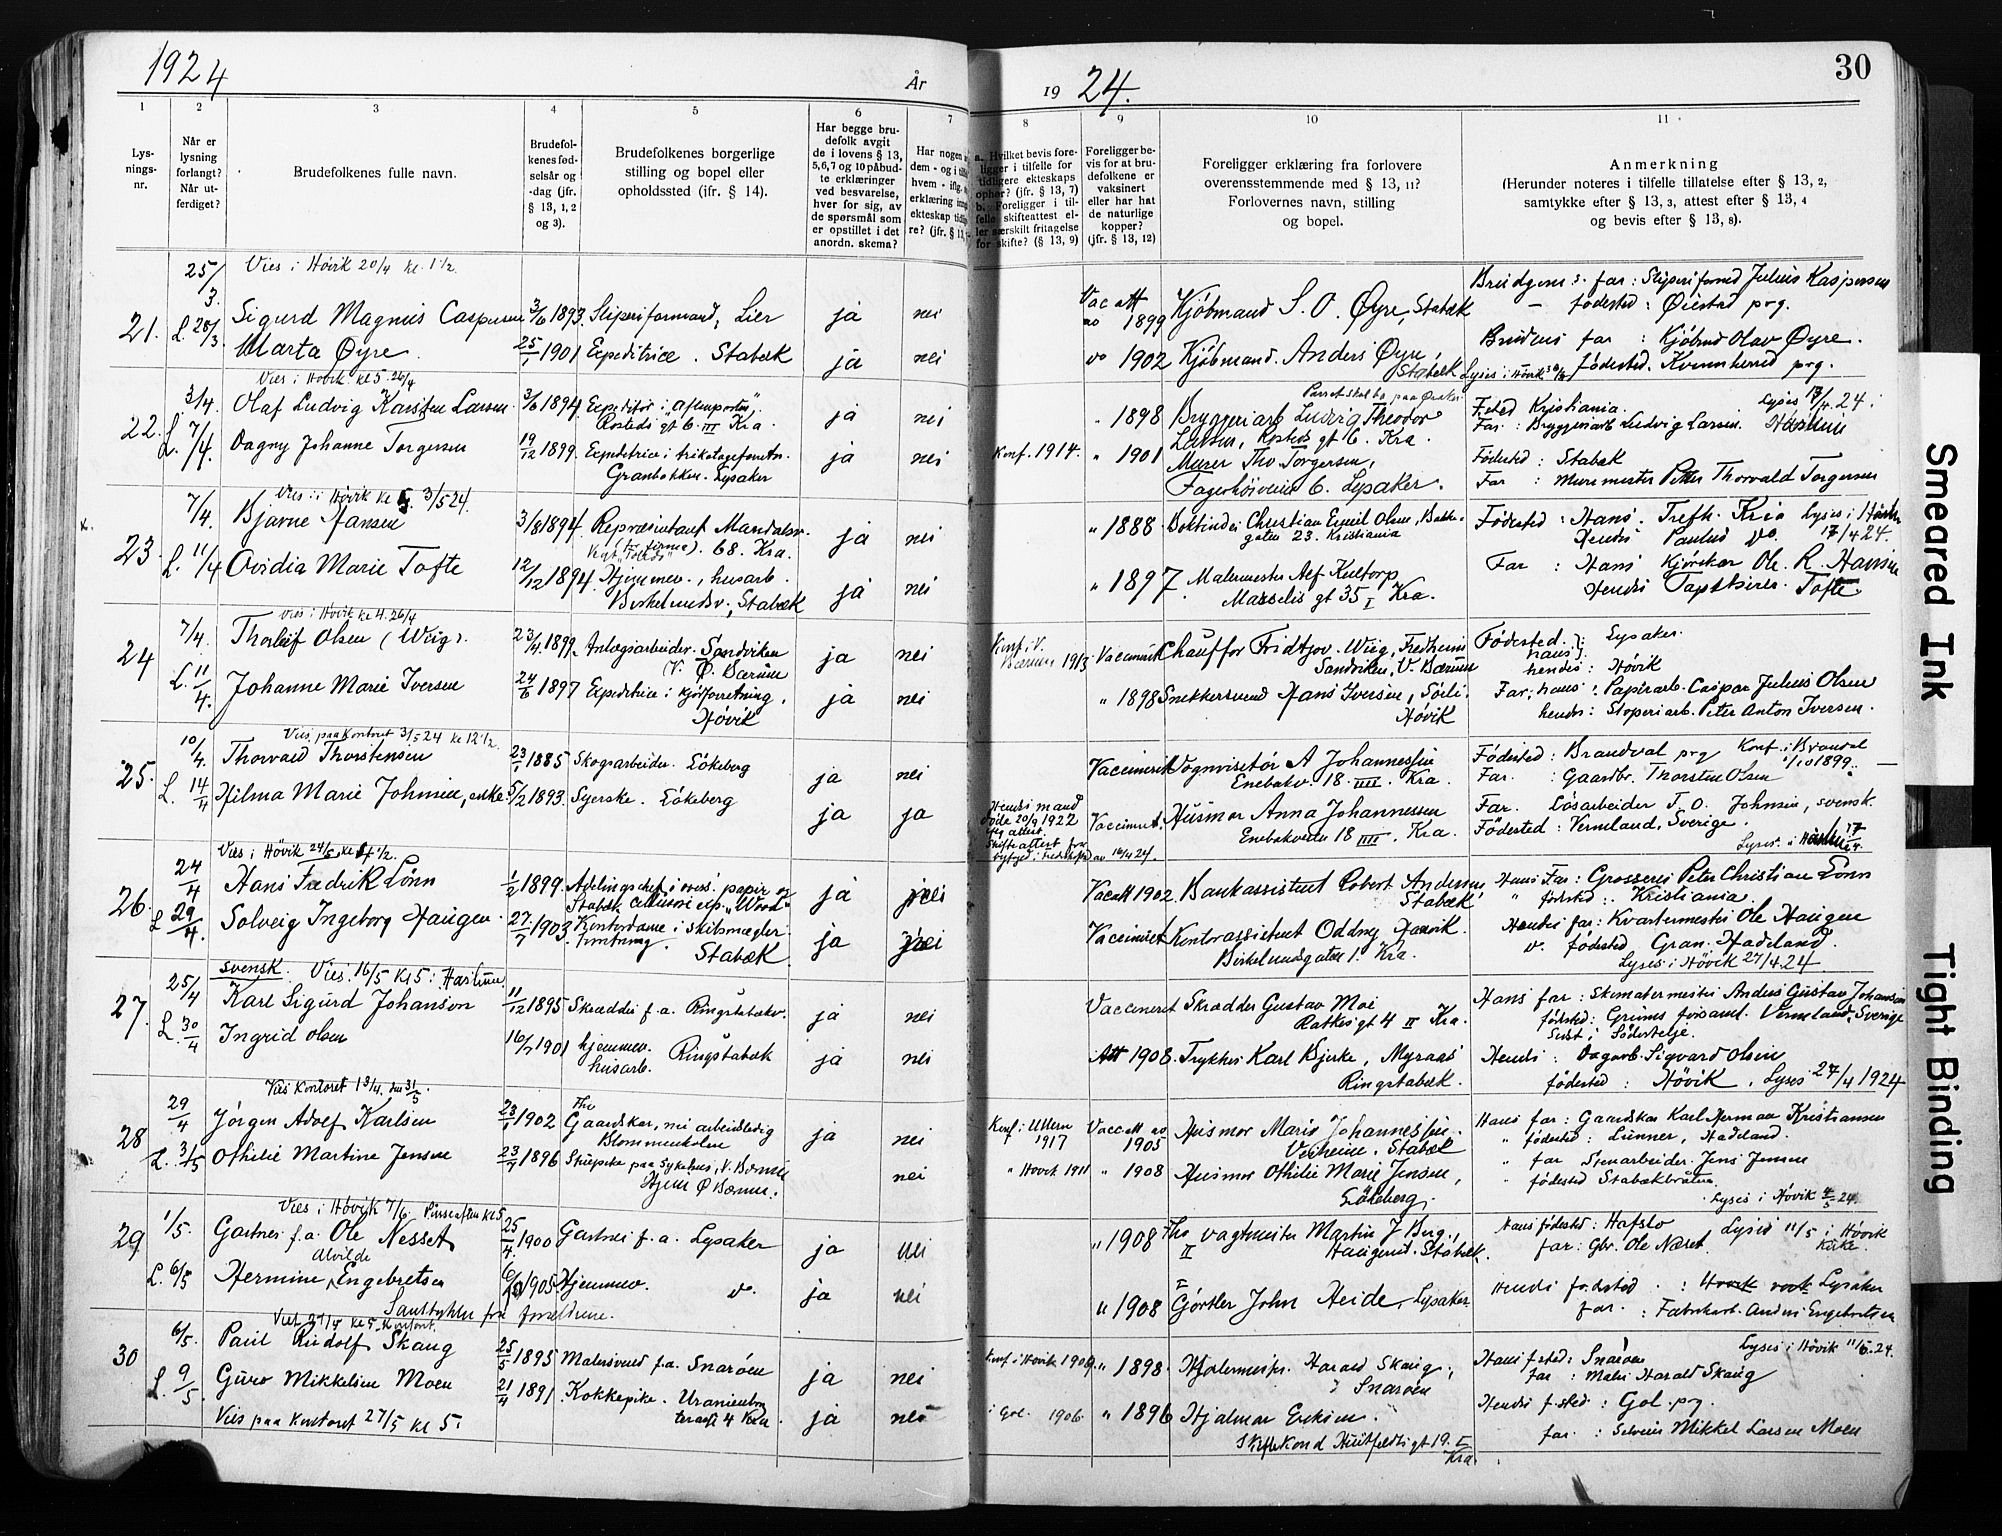 1924
År
19 24.
30
1
2
3
4
5
6
7
8
9
10
11
Lys-
nings-
nr.
Når er
lysning
forlangt?
Når ut-
ferdiget?
Brudefolkenes fulle navn.
Brudefol-
kenes fød-
selsår og
-dag (jfr.
§ 13, 1, 2
og 3).
Brudefolkenes borgerlige
stilling og bopel eller
opholdssted (ifr. § 14).
Har begge bru-
defolk avgit
de i lovens § 13,
5, 6, 7 og 10 påbud-
te erklæringer
ved besvarelse,
hver for sig, av
de spørsmål som
er opstillet i det
anordn. skema?
Har nogen
dem - og i
hvem - iflg.
erklæring
ekteskap
re? (jfr. § 13,
a. Hvilket bevis fore-
ligger i tilfelle for
tidligere ekteskaps
ophør? (jfr. § 13, 7)
b. Foreligger i til-
felle skifteattest el-
ler særskilt fritagelse
for skifte? (§ 13, 9)
Foreligger be-
vis for at bru-
defolkene er
vaksinert
eller har hat
de naturlige
kopper?
(jfr. § 13, 12)
Foreligger erklæring fra forlovere
overensstemmende med § 13, 11?
Forlovernes navn, stilling
og bopel.
Anmerkning
(Herunder noteres i tilfelle tillatelse efter § 13, 2,
samtykke efter § 13, 3, attest efter § 13, 4
og bevis efter § 13, 8).
Vies i Høvik 20/4 kl. 1 1/2.
21. 25/3. L. 28/3
Sigurd Magnus Caspersen 3/6 1893. Sliperiformand, Lier ja nei
Marta Øyre. 25/1 1901 Expeditrice. Stabæk ja nei
1899 Kjøbmand S. O. Øyre, Stabæk
do 1902 Kjøbmand. Anders Øyre, Stabæk
Brudgom s. far: Sliperiformd Julius Kaspersen
— fødested: Øiestad prg.
Brudens far: Kjøbmd Olav Øyre.
Lyses i Høvik fødested. Kvinnherred prg.
Vies i Høvik kl 5. 26/4
22. 3/4. L. 7/4
Olaf Ludvig Karsten Larsen. 3/6 1894. Expeditør i "Aftenposten". ja nei
Kra.
Dagny Johanne Torgersen 19/12 1899. Expeditrice i trikotageforretn. ja nei
Granbakken. Lysaker
Konf. 1914.
" 1898 Bryggeriarb Ludvig Theodor
Larsen, gt 6. Kra.
" 1901 Murer Tho Torgersen,
Fagerhøiveien 6. Lysaker.
F.sted Kristiania. Lyses 17/4. 24 i
Far: Bryggeriarb Ludvig Larsen. Haslum
Fødested: Stabæk
Far: Murmester Petter Thorvald Torgersen
Vies i Høvik kl 5. 3/5 24.
23. 7/4. L. 11/4
Bjarne Jansen 3/8 1894. Repræsentant Mandalsv. ja nei
(for firma). 68. Kra.
Ovidia Marie Tofte 12/12 1894. Hjemmev., husarb. ja nei
Birkelundsv., Stabæk
" 1888. Boktinder Christian Emil Olsen, Bakke-
gaten 23. Kristiania
" 1897. Malermester Alf Kultorp
Marselis gt 35 I Kra.
Fødested: Hans. Trefk. Kria Lyses i
Hendes Paulus do. 17/4 24.
Far: Hans Kjørekar Ole R. Hansen
Hendes Tapetserer Tofte.
Vies i Høvik kl 4. 26/4
24 7/4. L. 11/4.
Thorleif Olsen (Wiig). 23/4. 1899. Anlægsarbeider. Sandviken ja nei
V. Ø. Bærum
Johanne Marie Iversen 24/6 1897 Expeditrice i kjøtforretning, ja nei
Høvik
Konf. i V.
Bærum 1913
Vaccinert Chauffør Fridtjov Wiig, Fredheim
Sandviken, V. Bærum
" 1898 Snekkersvend Hans Iversen, Solli.
Høvik
Fødested hans: Lysaker.
hendes: Høvik
Far: hans: Papirarb. Caspar Julius Olsen
hendes: Støperiarb. Peter Anton Iversen.
Vies paa Kontoret 31/5 24 kl 12 1/2.
25. 10/4. L. 14/4
Thorvald Thorstensen 23/1 1885 Skogsarbeider. Løkeberg ja nei
Hilma Marie Johnsen, enke. 5/2 1893. Syerske. Løkeberg ja ja
Hendes mand
døde 20/9 1922
Skifteattest for
av 16/4 24.
Vaccineret Vognvisitør A Johannessen
Enebakv. 18 IIII. Kra.
Vaccineret. Husmor Anna Johannessen
Enebakveien 18 IIII. Kra.
Fødested: Brandval prg Konf. i Brandval
Far.: Gaardbr. Thorsten Olsen 1/10 1899.
Far. Løsarbeider T. O. Johnsen, svensk.
Fødested: Vermland, Sverige.
Lyses i
Vies i Høvik 24/5, kl 1/2.
26. 24/4 L 29/4.
Hans Fredrik Lønn 1/2 1899. Avdelingschef i overs. papir og ja nei
Stabæk
Solveig Ingeborg Haugen. 27/7 1903 Kontordame i skibsmægler- ja nei
forretning. Stabæk
Vac att 1902. Bankassistent Robert Andersen,
Stabæk
Vaccineret Kontorassistent Oddny Hauvik.
Birkelundsgaten 1. Kra.
Hans Far: Grosserer Peter Christian Lønn
" fødested: Kristiania.
Hendes far: Kvartermester Ole Haugen
do. fødested: Gran. Hadeland.
Lyses i Høvik 27/4. 24
svensk. Vies 16/5 Kl 5: Haslum
27. 25/4 L. 30/4
Karl Sigurd Johanson 11/12 1895 Skrædder f. a. Ringstabækv. ja nei
Ingrid Olsen 16/7 1901 hjemmev. husarb. Ringstabæk ja nei
Vaccineret Skrædder Gustav Moe
Ratkes gt 4 II Kra.
Att 1908. Trykker Karl Bjerke, Myraas
Ringstabæk.
Hans far: Skomakermester Anders Gustav Johanson
fødested: Grums forsaml. Vermland, Sverige
Sidst: Södertelje
Hendes: Dagarb. Sigvard Olsen
fødested: Høvik. Lyses 27/4 1924
Vies Kontoret 31/5.
28 29/4 L. 3/5
Jørgen Adolf Karlsen 23/1 1902 Gaardskar, nu arbeidsledig ja nei
Blommenholm
Othilie Martine Jensen 23/7 1896 Skurepike paa Sykehus, V. Bærum nei
Hjem Ø Bærum.
Konf. i Ullern
1917
" Høvik 1911
Vacc att av
1905 Husmor Marie Johannessen.
Stabæk
" 1908 Husmor Othilie Marie Jensen,
Løkeberg.
Hans far: Gaardskar Karl Herman Kristiansen
" fødested: Lunner, Hadeland.
" far Stenarbeider Jens Jensen
" fødested Stabækbråten.
Lyses i Høvik 4/5 24.
Vies i Høvik 7/6 Pinseaften kl 5
29 1/5. L. 6/5
Gartner f. a. Ole Nesset 25/4. 1900 Gartner f. a. Lysaker ja nei
Hermine Alvilde Engebretsen 1905 Hjemmev. do. ja nei
Samtykke fra forældrene.
" 1908 vagtmester Martin J Berg.,
Stabæk.
" 1908 Gjørtler John Heide, Lysaker
Hans fødested: Hafslo Lyses 11/5 i Høvik
far: Gbr. Ole Næset. Kirke.
Hendes fødested: Lysaker
far.: Fabrikarb. Anders Engebretsen
30 6/5. L. 9/5.
Paul Rudolf Skaug 25/5 1895 Malersvend f. a. Snarøen ja nei
Guro Mikkelsen Moen 21/4 1891. Kokkepike. Uranienborg ja nei
terasse 4 Kra.
Vies paa Kontoret 27/5 kl 5.
Konf. i Høvik 1909. " 1898. Harald Skaug,
Snarøen
i Gol. 1906. " 1896 Hjalmar Eriksen.
Huitfeldts gt 19. I Kra.
Hans f.sted: Snarøen Lyses i Høvik 11/5. 24.
far: Maler Harald Skaug
Hendes f.sted: Gol. prg.
far.: Selveier Mikkel Larsen Moen
Smeared Ink
Tight Binding